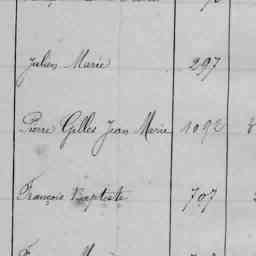 Julien Marie 297
Pierre Gilles Jean Marie 1092
François Baptiste 707